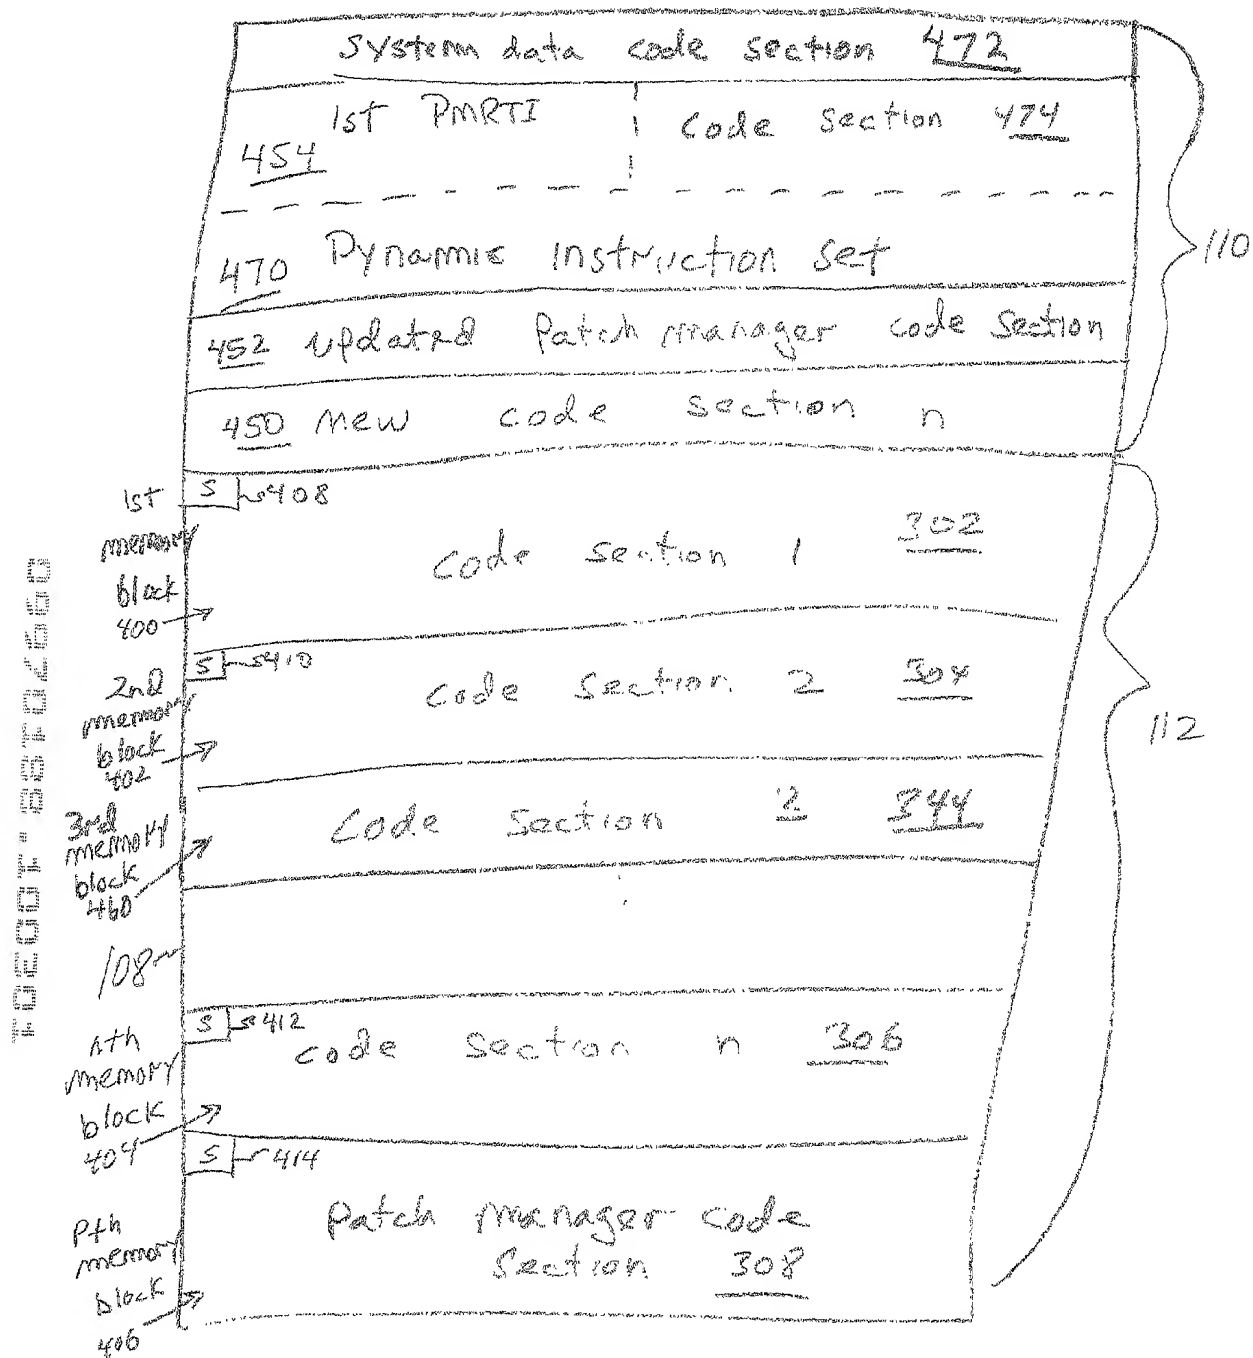 System data code section 472
1st PMRTI code section 474
454
470 Dynamic instruction set
110
452 updated patch manager code section
450 new code section n
1st memory block 400
S 408
code section 1 302
2nd memory block 402
S 410
code section 2 304
112
3rd memory block 460
code section 2 344
108
nth memory block 404
S 412
code section n 306
pth memory block 406
S 414
patch manager code
section 308